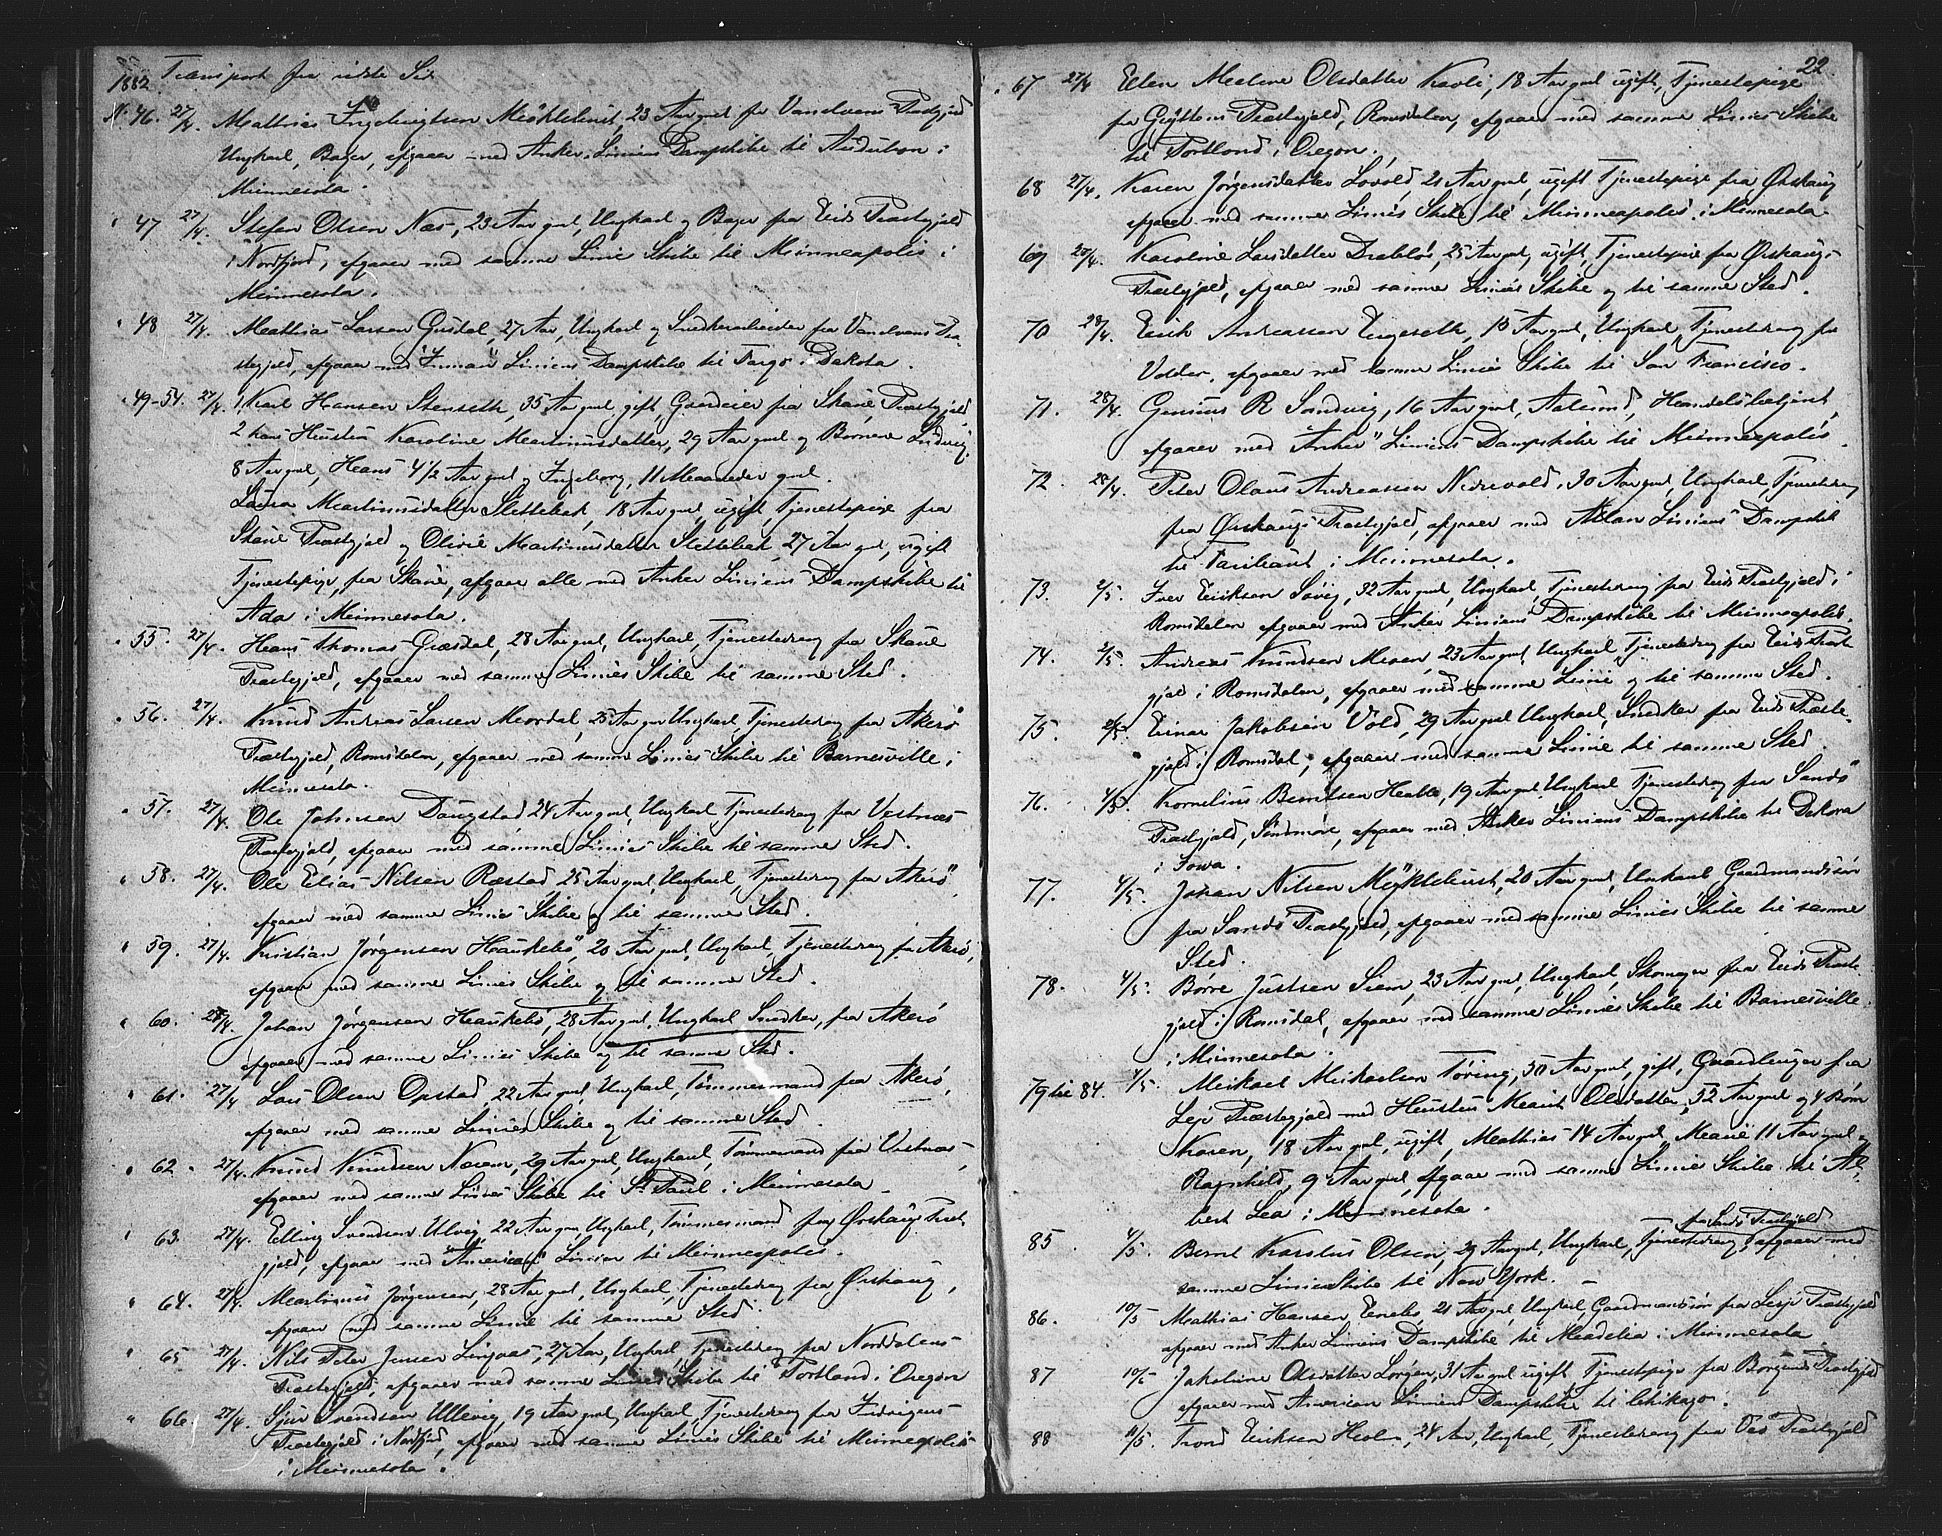 1882. Transport fra sidste Side
No 46. 27/4. Mathias Ingebrigtsen Myklebust, 23 Aar gml. fra Vanelvens Præstegjeld
Ungkarl, Bager, afgaaer med Anker Liniens Dampskibe til Audubon i
Minnesota.
" 47 27/4. Stefen Olsen Næs, 23 Aar gml, Ungkarl og Bager fra Eids Præstegjeld
i Nordfjord, afgaaer med samme Linie Skibe til Minneapolis i
Minnesota.
" 48 27/4. Mathias Larsen Gusdal, 27 Aar, Ungkarl og Snedkerarbeider fra Vanelvens Præ-
stegjeld, afgaaer med "Inman" Liniens Dampskibe til Fargo i Dakota.
" 49-54. 27/4. 1, Karl Hansen Stenseth, 35 Aar gml, gift, Gaardeier fra Skaue Præstegjeld,
2 hans Hustru Karoline Martinusdatter, 29 Aar gml og Børnene Ludvig,
8 Aar gml, Hans 4 1/2 Aar gml og Ingeborg, 11 Maaneder gml.
Laura Martinusdatter Slettebak, 18 Aar gml, ugift, Tjenestepige fra
Skaue Præstegjeld og Olivie Martinusdatter Slettebak, 27 Aar gml, ugift
Tjenestepige, fra Skaue, afgaaer alle med Anker Liniens Dampskibe til
Ada i Minnesota.
" 55. 27/4. Hans Thomas Græsdal, 28 Aar gml, Ungkarl, Tjenestedreng fra Skaue
Præstegjeld, afgaaer med samme Linies Skibe til samme Sted.
" 56. 27/4. Knud Andreas Larsen Mordal, 25 Aar gml Ungkarl, Tjenestedreng fra Akerø
Præstegjeld, Romsdalen, afgaaer med samme Linies Skibe til Barnesville i
Minnesota.
" 57. 27/4. Ole Johnsen Daugstad, 24 Aar gml, Ungkarl Tjenestedreng fra Vestnæs
Præstegjeld, afgaaer med samme Linies Skibe til samme Sted.
" 58. 27/4. Ole Elias Nilsen Ræstad 25 Aar gml, Ungkarl, Tjenestedreng fra Akerø,
afgaaer med samme Linies Skibe og til samme Sted.
" 59. 27/4. Kristian Jørgensen Haukebø, 20 Aar gml, Ungkarl, Tjenestedreng fra Akerø,
afgaaer med samme Linies Skibe og til samme Sted.
" 60. 28/4. Johan Jørgensen Haukebø, 28 Aar gml, Ungkarl Snedker, fra Akerø
afgaaer med samme Linies Skibe og til samme Sted.
" 61. 27/4 Lars Olsen Opstad, 22 Aar gml, Ungkarl, Tømmermand fra Akerø,
afgaaer med samme Linies Skibe og til samme Sted.
" 62. 27/4. Knud Knudsen Næren, 29 Aar gml, Ungkarl, Tømmermand fra Vestnæs,
afgaaer med samme Linies Skibe til St Paul i Minnesota
" 63. 27/4. Elling Svendsen Ulvig, 22 Aar gml Ungkarl, Tømmermand fra Ørskaug Præst
gjeld, afgaaer med "American" Linien til Minneapolis.
" 64. 27/4. Martinus Jørgensen, 28 Aar gml, Ungkarl, Tjenestedreng fra Ørskaug,
afgaaer med samme Linie til samme Sted.
" 65 27/4. Nils Peter Jensen Lingaas, 27 Aar, Ungkarl Tjenestedreng fra Norddalens
Præstegjeld, afgaaer med samme Linies Skibe til Portland i Oregon
" 66. 27/4. Sjur Svendsen Ullevig, 19 Aar gml, Ungkarl, Tjenestedreng fra Indvigens
Præstegjeld i Nordfjord, afgaaer med samme Linies Skibe til Minneapolis
i Minnesota.
22.
" 67 27/4 Ellen Marline Olsdatter Kavli, 18 Aar gml ugift, Tjenestepige
fra Gryttens Præstegjeld, Romsdalen, afgaaer med samme Linies Skibe
til Portland i Oregon.
68 27/4. Karen Jørgensdatter Løvold, 21 Aar gml, ugift Tjenestepige fra Ørskaug
afgaaer med samme Linies Skibe til Minneapolis i Minnesota.
69 28/4. Karoline Larsdatter Drabløs, 25 Aar gml, ugift, Tjenestepige fra Ørskaugs
Præstegjeld, afgaaer med samme Linies Skibe og til samme Sted.
70 28/4. Erik Andreassen Engeseth, 15 Aar gml, Ungkarl, Tjenestedreng fra
Volden, afgaaer med samme Linies Skibe til San Francisco.
71. 28/4. Gunius R Sandvig, 16 Aar gml, Aalesund, Handelsbetjent,
afgaaer med "Anker" Liniens Dampskibe til Minneapolis.
72. 28/4. Peter Olaus Andreassen Nedrevold, 30 Aar gml, Ungkarl, Tjenestedreng
fra Ørskaugs Præstegjeld, afgaaer med Allan Liniens Dampskib
til Faribault i Minnesota.
73. 2/5. Iver Erikson Søvig, 32 Aar gml, Ungkarl, Tjenestedreng fra Eids Præstegjeld i
Romsdalen afgaaer med Anker Liniens Dampskibe til Minneapolis.
74. 2/5. Andreas Knudsen Moen, 23 Aar gml, Ungkarl Tjenestedreng fra Eids Præst
gjeld i Romsdalen, afgaaer med samme Linie og til samme Sted.
75. 2/5. Einar Jakobsen Vold, 29 Aar gml Ungkarl, Snedker fra Eids Præste-
gjeld i Romsdal, afgaaer med samme Linie til samme Sted
76. 4/5. Kornelius Berntsen Hauble, 19 Aar gml Ungkarl Tjenestedreng fra Sandø
Præstegjeld, Søndmøre, afgaaer med Anker Liniens Dampskibe til Dekora
i Iowa.
77. 4/5. Johan Nilsen Myklebust, 20 Aar gml, Ungkarl Gaardmandssøn
fra Sandø Præstegjeld, afgaaer med samme Linies Skibe til samme
Sted.
78. 4/5. Børre Justsen Siem, 23 Aar gml, Ungkarl, Skomager fra Eids Præste
gjeld i Romsdal, afgaaer med samme Linies Skibe til Barnesville
i Minnesota.
79 til 84. 4/5. Mikael Mikaelsen Tøring, 50 Aar gml, gift, Gaardbruger fra
Lesje Præstegjeld med Hustru Marit Olsdatter, 52 Aar gml og 4 Børn
Karen, 18 Aar gml, ugift, Mathias 14 Aar gml, Marie 11 Aar gml og
Ragnhild, 9 Aar gml, afgaaer med samme Linie Skibe til Al-
bert Lea i Minnesota.
fra Sandø Præstegjeld
85. 4/5. Bernt Karolus Olsen, 29 Aar gml, Ungkarl, Tjenestedreng, afgaaer med
samme Linies Skibe til New York.
86. 10/5 Mathias Hansen Enebo, 21 Aar gml, Ungkarl Gaardmandssøn fra Lesje Præstegjeld
afgaaer med Anker Liniens Dampskibe til Madelia i Minnesota
87 10/5 Jakobine Olsdatter Lorgen, 31 Aar gml ugift Tjenestepige fra Borgund Præstegjeld
afgaaer med American Liniens Dampskibe til Chikago.
88 11/5. Trond Eriksen Holen, 24 Aar, Ungkarl, Tjenestedreng fra Vos Præstegjeld